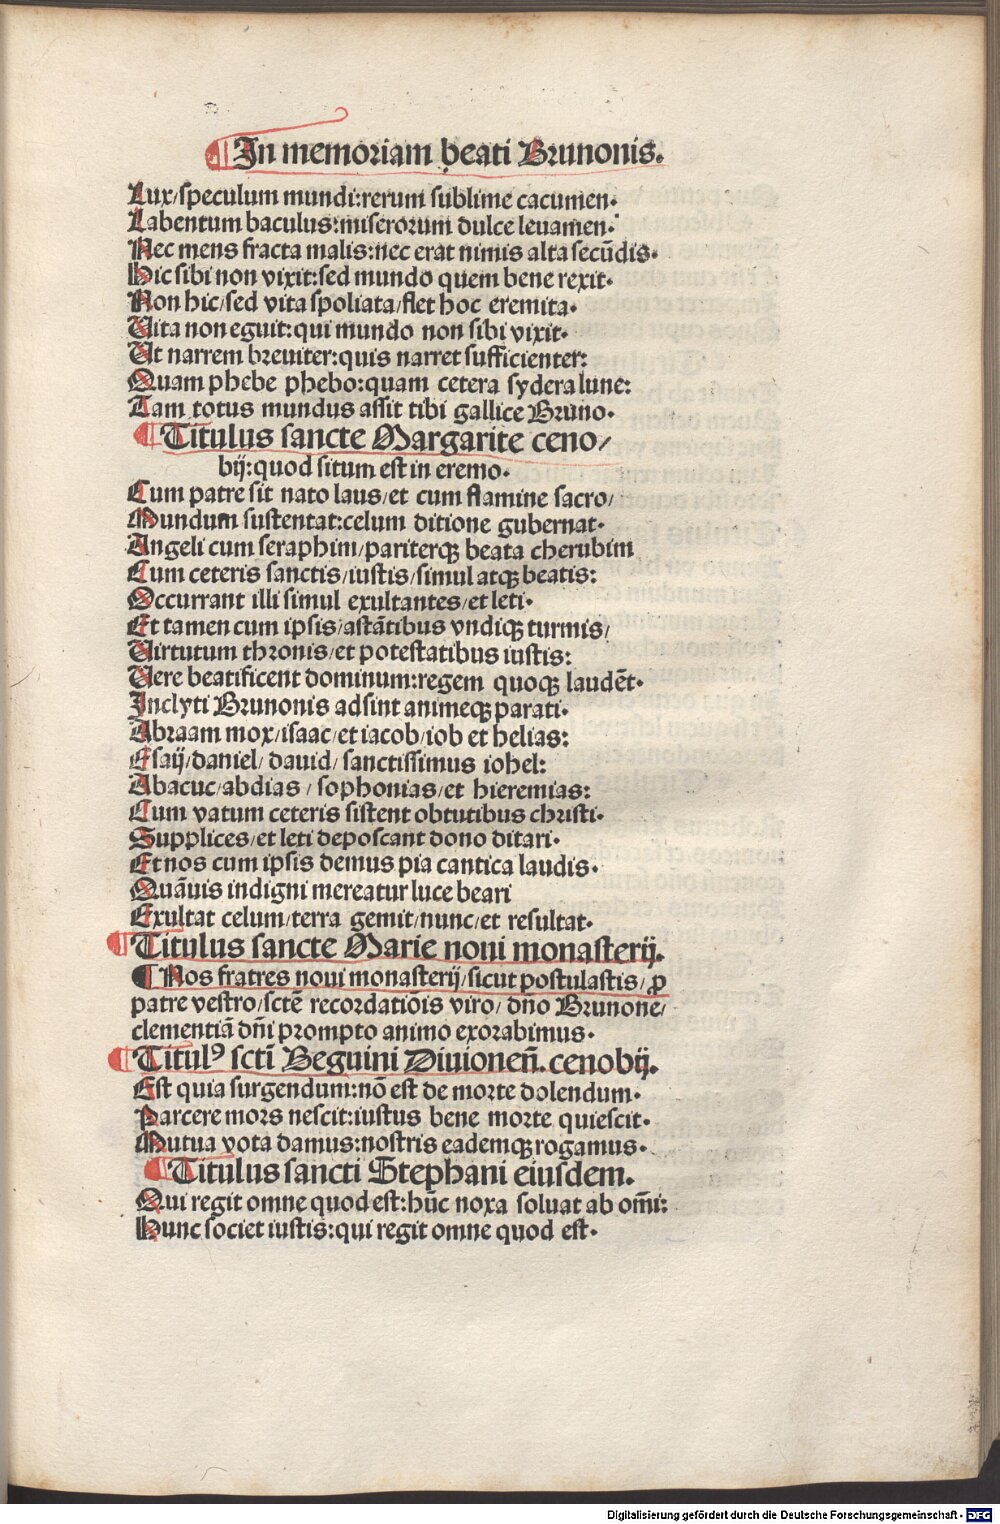 ¶ In memoriam beati Brunonis.
Lux/speculum mundi:rerum sublime cacumen·
Labentum baculus:miserorum dulce leuamen·
Nec mens fracta malis:nec erat nimis alta secūdis·
Hic sibi non vixit:sed mundo quem bene rexit·
Non hic/sed vita spoliata/flet hoc eremita·
Uita non eguit:qui mundo non sibi vixit·
Ut narrem breuiter:quis narret sufficienter:
Quam phebe phebo:quam cetera sydera lune:
Tam totus mundus assit tibi gallice Bruno·
¶ Titulus sancte Margarite ceno/
bij:quod situm est in eremo·
Cum patre sit nato laus/et cum flamine sacro/
Mundum sustentat:celum ditione gubernat·
Angeli cum seraphim/pariterqꝫ beata cherubim
Cum ceteris sanctis/iustis/simul atqꝫ beatis:
Occurrant illi simul exultantes/et leti·
Et tamen cum ipsis/astātibus vndiqꝫ turmis/
Uirtutum thronis/et potestatibus iustis:
Uere beatificent dominum:regem quoqꝫ laudēt·
Inclyti Brunonis adsint animeqꝫ parati·
Abraam mox/isaac/et iacob/iob et helias:
Esaij/daniel/dauid/sanctissimus iohel:
Abacuc/abdias/sophonias/et hieremias:
Cum vatum ceteris sistent obtutibus christi·
Supplices/et leti deposcant dono ditari·
Et nos cum ipsis demus pia cantica laudis·
Quāuis indigni mereatur luce beari
Exultat celum/terra gemit/nunc/et resultat·
¶ Titulus sancte Marie noui monasterij.
¶ Nos fratres noui monasterij/sicut postulastis/ꝓ
patre vestro/sctē recordatiōis viro/dño Brunone/
clementiā dñi prompto animo exorabimus·
¶ Titulꝰ scti̅ Beguini Diuioneñ.cenobij.
Est quia surgendum:nō est de morte dolendum·
Parcere mors nescit:iustus bene morte quiescit·
Mutua vota damus:nostris eademqꝫ rogamus·
¶ Titulus sancti Stephani eiusdem.
Qui regit omne quod est:hūc noxa soluat ab om̄i:
Hunc societ iustis:qui regit omne quod est·
Digitalisierung gefördert durch die Deutsche Forschungsgemeinschaft - DFG